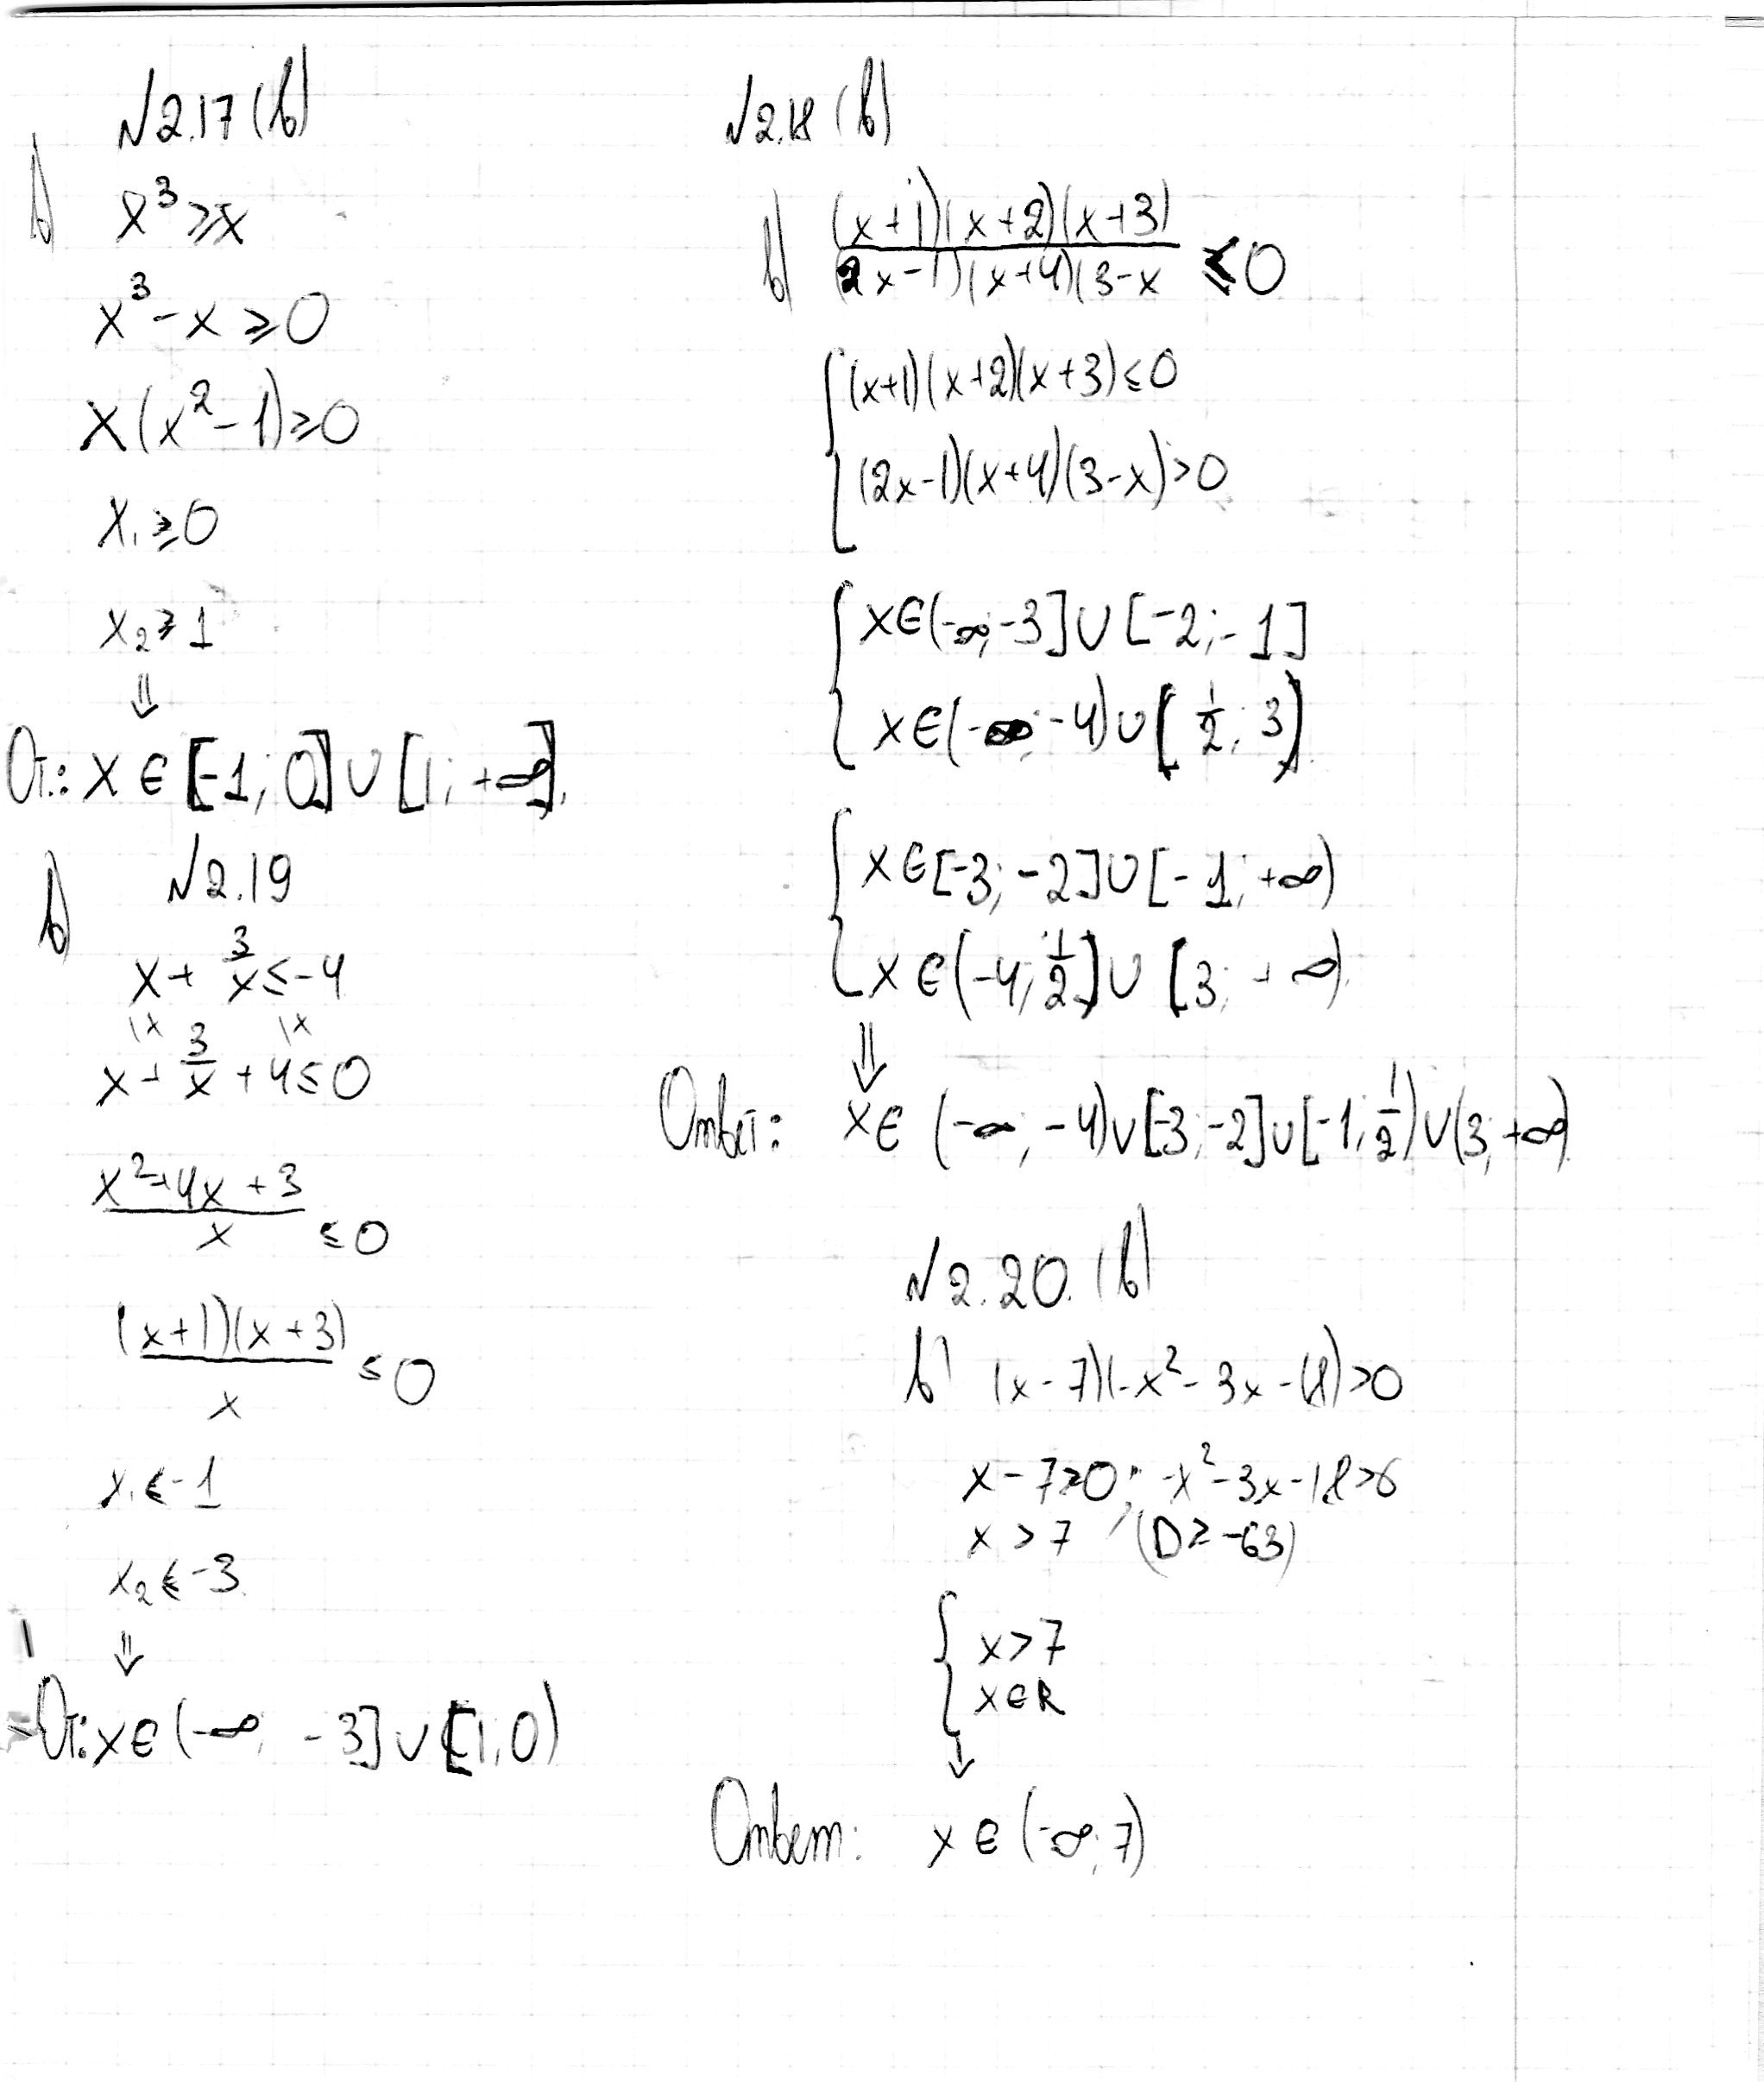 №2.17(в)
в) x³ ⩾ x
x³ - x ⩾ 0
x(x² - 1) ⩾ 0
x₁ ⩾ 0
x₂ ⩾ 1
⇓
От.: x ∈ [-1; 0] ∪ [1; +∞].
№2.19
в)
x + 3/x ≤ -4
\x \x
x + 3/x + 4 ≤ 0
(x² + 4x + 3)/x ≤ 0
((x+1)(x+3))/x ≤ 0
x₁ ⩽ -1
x₂ ⩽ -3
⇓
От.: x ∈ (-∞; -3] ∪ [1; 0)
№2.18 (в)
в) (x+1)(x+2)(x+3)/(2x-1)(x+4)(3-x ⩽ 0
{ (x+1)(x+2)(x+3) ≤ 0
(2x-1)(x+4)(3-x) > 0
{ x ∈ (-∞; -3] ∪ [-2; -1]
x ∈ (-∞; -4) ∪ (1/2; 3)
{ x ∈ [-3; -2] ∪ [-1; +∞)
x ∈ (-4; 1/2] ∪ [3; +∞)
⇓
Ответ: x ∈ (-∞; -4) ∪ [-3; -2] ∪ [-1; 1/2) ∪ (3; +∞)
№2.20. (в)
в) (x-7)(-x² - 3x - 18) > 0
x - 7 > 0; -x² - 3x - 18 > 0
x > 7 (D = -63)
{ x > 7
x ∈ R
↓
Ответ: x ∈ (-∞; 7)